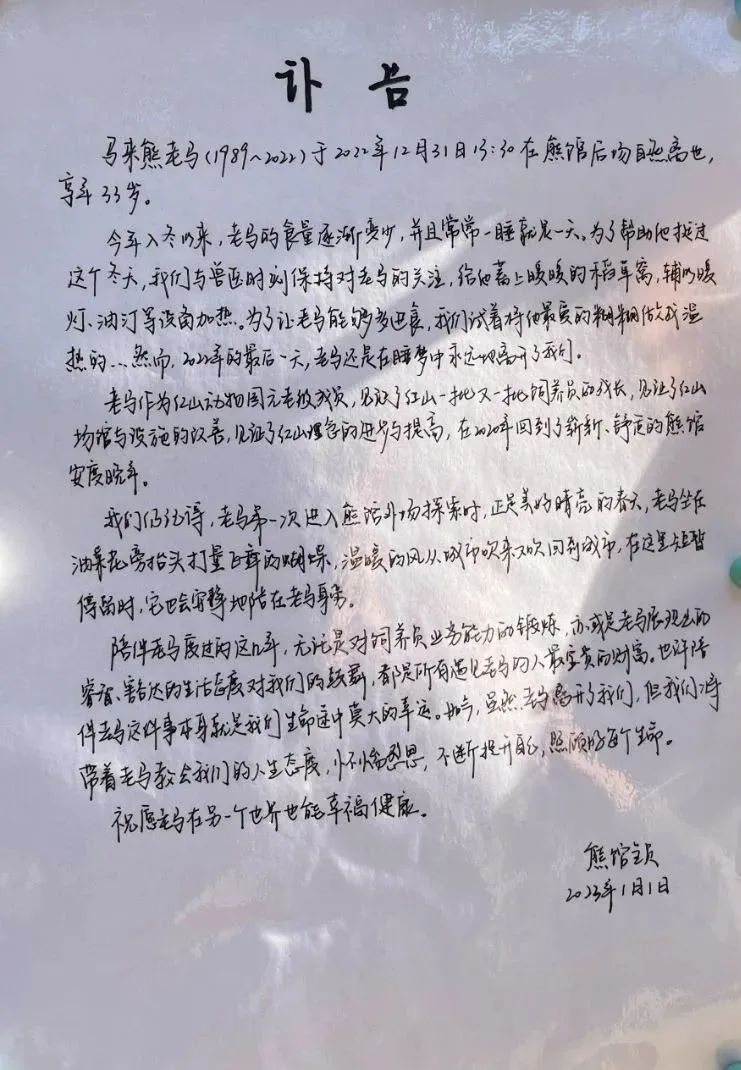 讣告
马来熊老马(1989~2022)于2022年12月31日13:30在熊馆后场自然离世,
享年33岁。
今年入冬以来,老马的食量逐渐变少,并且常常一睡就是一天。为了帮助他挺过
这个冬天,我们与兽医时刻保持对老马的关注,给他蓄上暖暖的稻草窝,辅以暖
灯、油汀等设备加热。为了让老马能够多进食,我们试着将他最爱的糊糊做成温
热的...然而,2022年的最后一天,老马还是在睡梦中永远地离开了我们。
老马作为红山动物园元老级成员,见证了红山一批又一批饲养员的成长,见证了红山
场馆与设施的改善,见证了红山理念的进步与提高,在2020年回到了崭新、舒适的熊馆
安度晚年。
我们仍记得,老马第一次进入熊馆外场探索时,正是美好晴亮的春天,老马坐在
油菜花旁抬头打量飞舞的蝴蝶,温暖的风从城市吹来又吹回到城市,在这里短暂
停留时,它也会安静地陪在老马身旁。
陪伴老马度过的这几年,无论是对饲养员业务能力的锻炼,亦或是老马展现出的
睿智、豁达的生活态度对我们的鼓舞,都是所有遇见老马的人最宝贵的财富。也许陪
伴老马这件事本身就是我们生命途中莫大的幸运。如今,虽然老马离开了我们,但我们将
带着老马教会我们的人生态度,怀恋思,不断提升自己,照顾好每个生命。
祝愿老马在另一个世界也能幸福健康。
熊馆全员
2023年1月1日